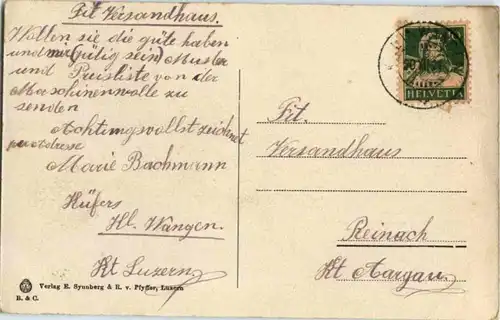 Tit. Versandhaus.
Wollen sie die güte haben
und mir (gütig sein) Muster
und Preisliste von der
Maschinenwolle zu
senden
Achtungsvollst zeichnet
Marie Bachmann
Küfers
Kl. Wangen.
Kt Luzern.
Verlag E. Synnberg & R. v. Pfyffer, Luzern
B. & C.
HELVETIA
Tit.
Versandhaus
Reinach
Kt Aargau.